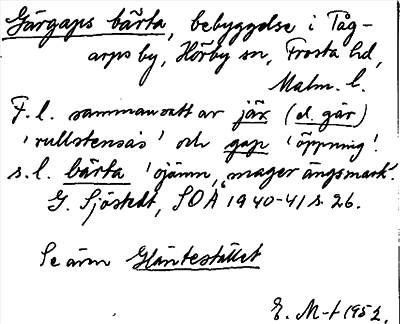 Gärgaps bärta, bebyggelse i Tåg-
arps by, Hörby sn, Frosta hd,
Malm. l.
F. l. sammansatt av jär (el. gär)
'rullstensås' och gap 'öppning'.
s. l. bärta 'ojämn, mager ängsmark'.
G. Sjöstedt, SOÅ 1940-41 s. 26.
Se även Gläntestället
E. M-t 1952.